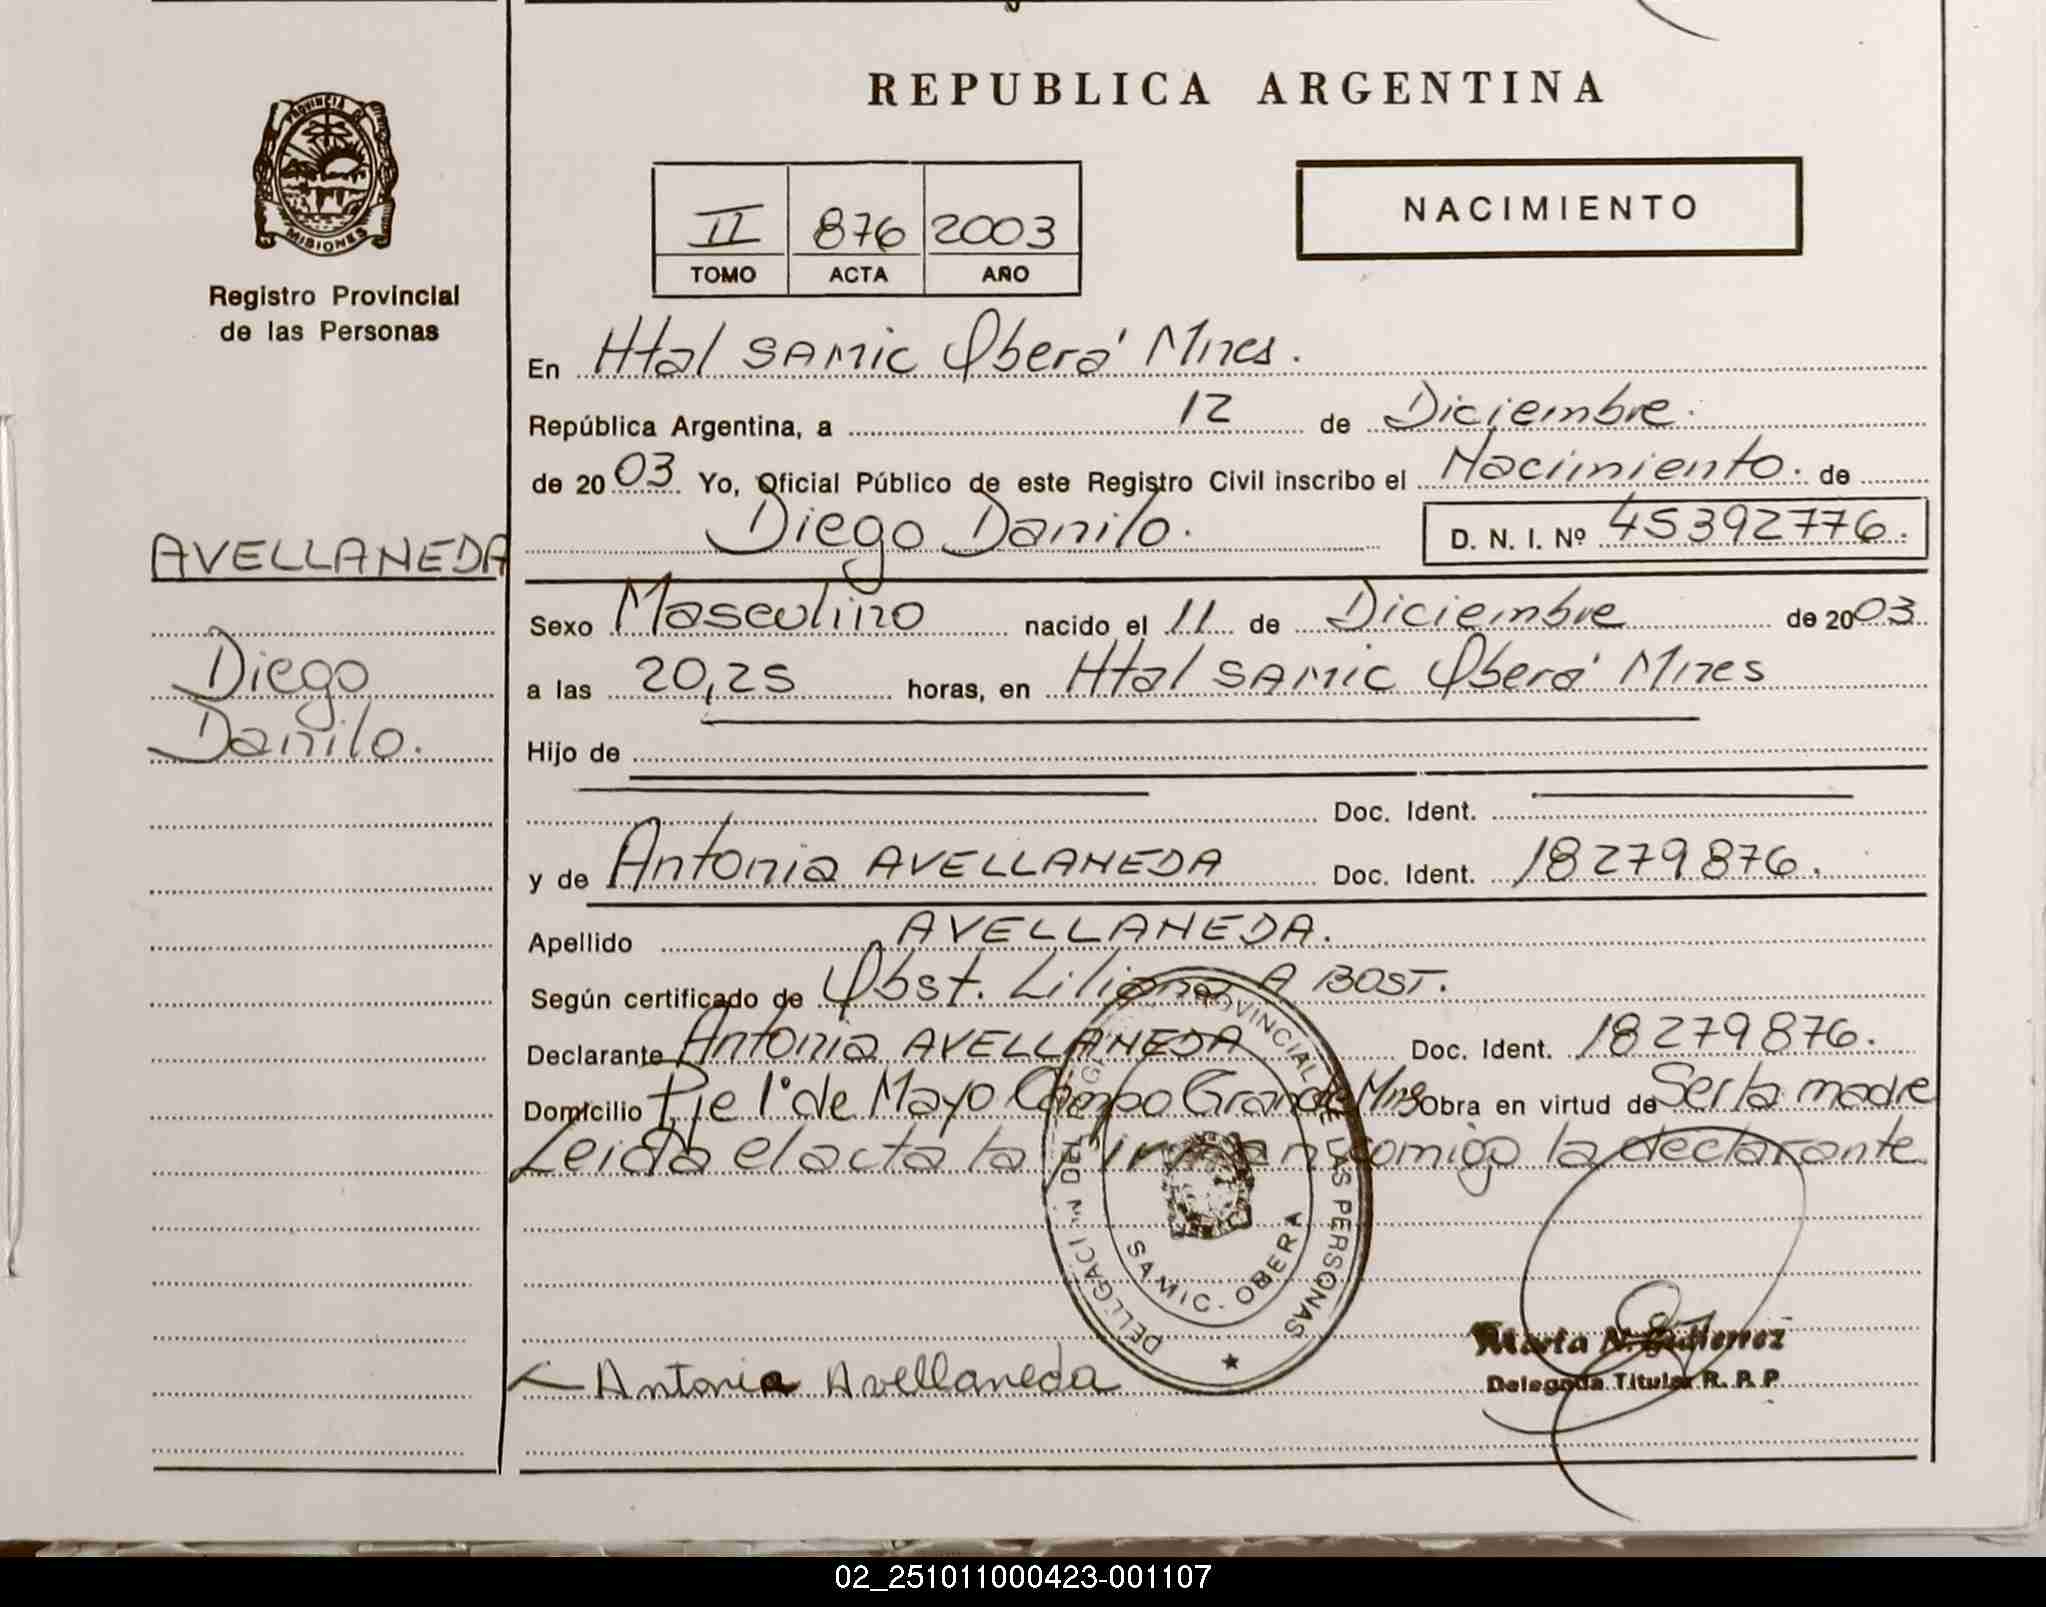 REPUBLICA ARGENTINA
PROVINCIA DE
MISIONES
Registro Provincial
de las Personas
II 876 2003
TOMO ACTA AÑO
NACIMIENTO
En Htal SAMIC Oberá Mnes.
República Argentina, a 12 de Diciembre.
de 2003 Yo, Oficial Público de este Registro Civil inscribo el Nacimiento. de
Diego Danilo. D. N. I. Nº 45392776.
AVELLANEDA
Diego
Danilo.
Sexo Masculino nacido el 11 de Diciembre de 2003
a las 20,25 horas, en Htal SAMIC Oberá Mnes
Hijo de
Doc. Ident.
y de Antonia AVELLANEDA Doc. Ident. 18279876.
Apellido AVELLANEDA.
Según certificado de Obst. Liliana A BOST.
Declarante Antonia AVELLANEDA Doc. Ident. 18279876.
Domicilio Pje 1º de Mayo Campo Grande Mnes Obra en virtud de Ser la madre
Leida el acta la firman comigo la declarante
PROVINCIAL DE LAS PERSONAS
SAMIC - OBERA
Antonia Avellaneda
Marta N. Gutierrez
Delegada Titular R. P. P.
02_251011000423-001107